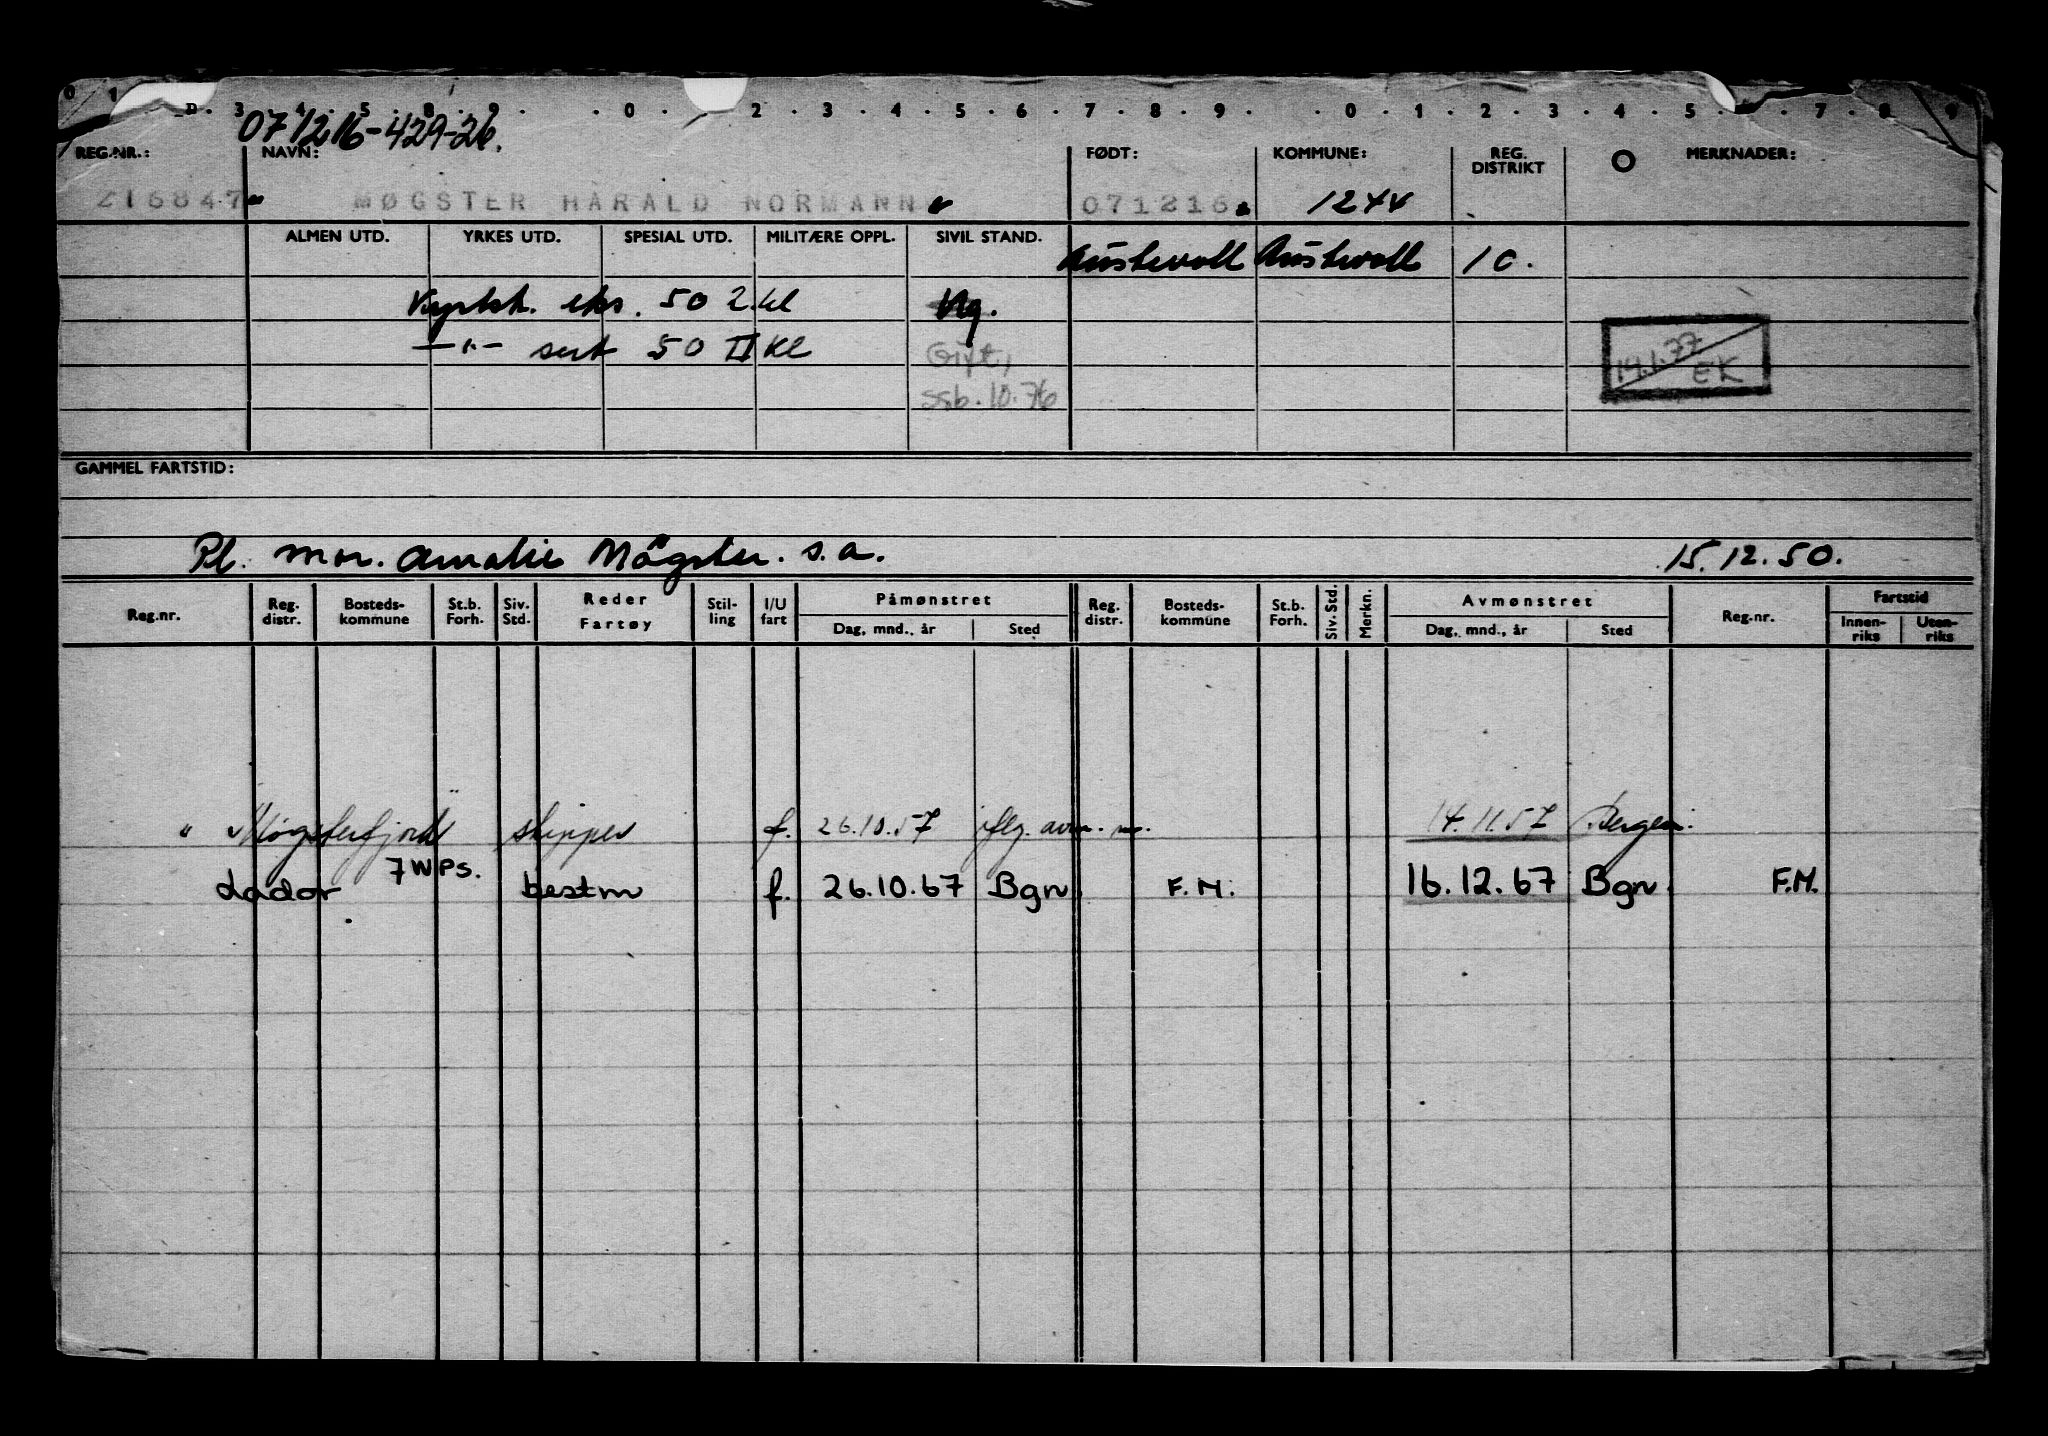 071216-429-26.
REG.NR.: NAVN: FØDT: KOMMUNE: REG. DISTRIKT MERKNADER:
216847 MØGSTER HARALD NORMANN 071216 1244
ALMEN UTD. YRKES UTD. SPESIAL UTD. MILITÆRE OPPL. SIVIL STAND. Austevoll Austevoll 10.
Kystsk. eks. 50 2.kl Ug.
—"— sert 50 II kl Gift,
14.1.77 EK
ssb. 10.76
GAMMEL FARTSTID:
Pl. mor. Amalie Møgster. s.a. 15.12.50.
Reg.nr. Reg. distr. Bosteds-kommune St.b. Forh. Siv. Std. Reder Fartøy Stil-ling I/U fart Påmønstret Dag, mnd., år Sted Reg. distr. Bosteds-kommune St.b. Forh. Siv. Std. Merkn. Avmønstret Dag, mnd., år Sted Reg.nr. Fartstid Innen-riks Uten-riks
"Møgsterfjord" skipper f. 26.10.57 iflg. avm. m. 14.11.57 Bergen.
Lador 7WPS. bestm f. 26.10.67 Bgn F.M. 16.12.67 Bgn. F.M.